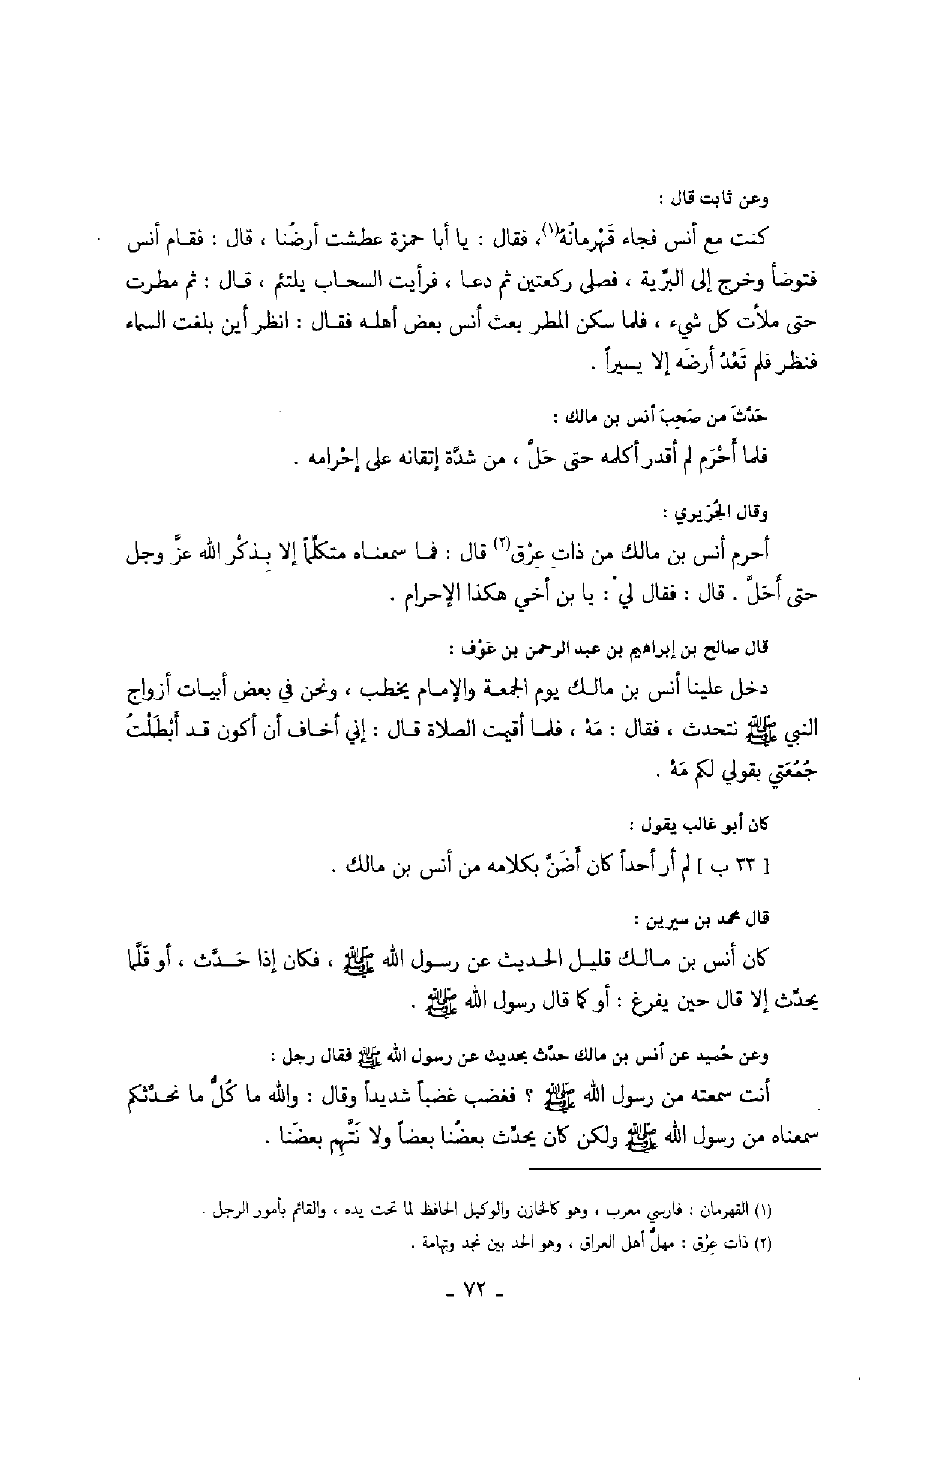 وعن ثابت قال :
كنت مع أنس فجاء قَهْرمانُه(١)، فقال : يا أبا حمزة عطشت أرضُنا ، قال : فقام أنس
فتوضأ وخرج إلى البرِّية ، فصلى ركعتين ثم دعا ، فرأيت السحاب يلتئم ، قال : ثم مطرت
حتى ملأت كل شيء ، فلما سكن المطر بعث أنس بعض أهله فقال : انظر أين بلغت السماء
فنظر فلم تَعْدُ أرضَه إلا يسيراً .
حَدَّثَ من صَحِبَ أنس بن مالك :
فلما أَحْرَم لم أقدر أكلمه حتى حَلَّ ، من شدَّة إتقانه على إحْرامه .
وقال الجُرَيري :
أحرم أنس بن مالك من ذات عِرْق(٢) قال : فما سمعناه متكلِّماً إلا بِذكْر الله عزَّ وجل
حتى أَحَلَّ . قال : فقال لي : يا بن أخي هكذا الإحرام .
قال صالح بن إبراهيم بن عبد الرحمن بن عَوْف :
دخل علينا أنس بن مالك يوم الجمعة والإمام يخطب ، ونحن في بعض أبيات أزواج
النبي ﷺ نتحدث ، فقال : مَهْ ، فلما أقيمت الصلاة قال : إني أخاف أن أكون قد أَبْطَلْتُ
جُمُعَتي بقولي لكم مَهْ .
كان أبو غالب يقول :
[ ٣٣ ب ] لم أر أحداً كان أَضَنَّ بكلامه من أنس بن مالك .
قال محمد بن سيرين :
كان أنس بن مالك قليل الحديث عن رسول الله ﷺ ، فكان إذا حَدَّث ، أو قَلَّما
يحدِّث إلا قال حين يفرغ : أو كما قال رسول الله ﷺ .
وعن حُميد عن أنس بن مالك حدَّث بحديث عن رسول الله ﷺ فقال رجل :
أنت سمعته من رسول الله ﷺ ؟ فغضب غضباً شديداً وقال : والله ما كُلُّ ما نحدِّثكم
سمعناه من رسول الله ﷺ ولكن كان يحدِّث بعضُنا بعضاً ولا نَتَّهم بعضَنا .
(١) القهرمان : فارسي معرب ، وهو كالخازن والوكيل الحافظ لما تحت يده ، والقائم بأمور الرجل .
(٢) ذات عِرْق : مهلُّ أهل العراق ، وهو الحد بين نجد وتهامة .
ـ ٧٢ ـ